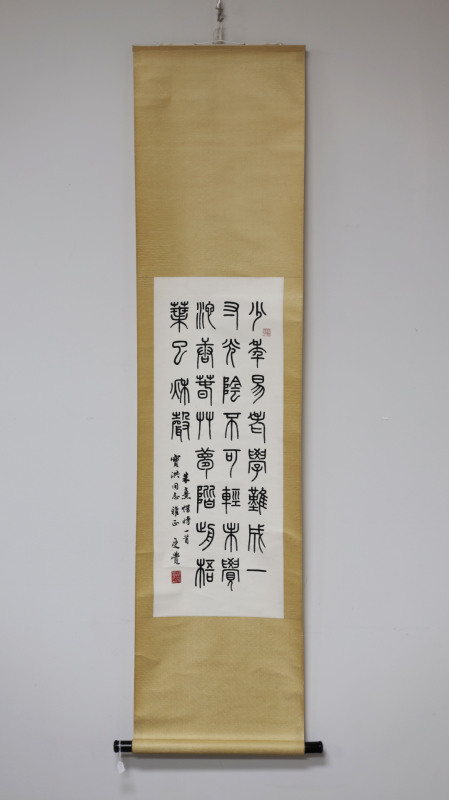 少年易老學難成一
寸光陰不可輕未覺
池塘春草夢階前梧
葉已秋聲
朱熹惜時一首
寶洪同志雅正